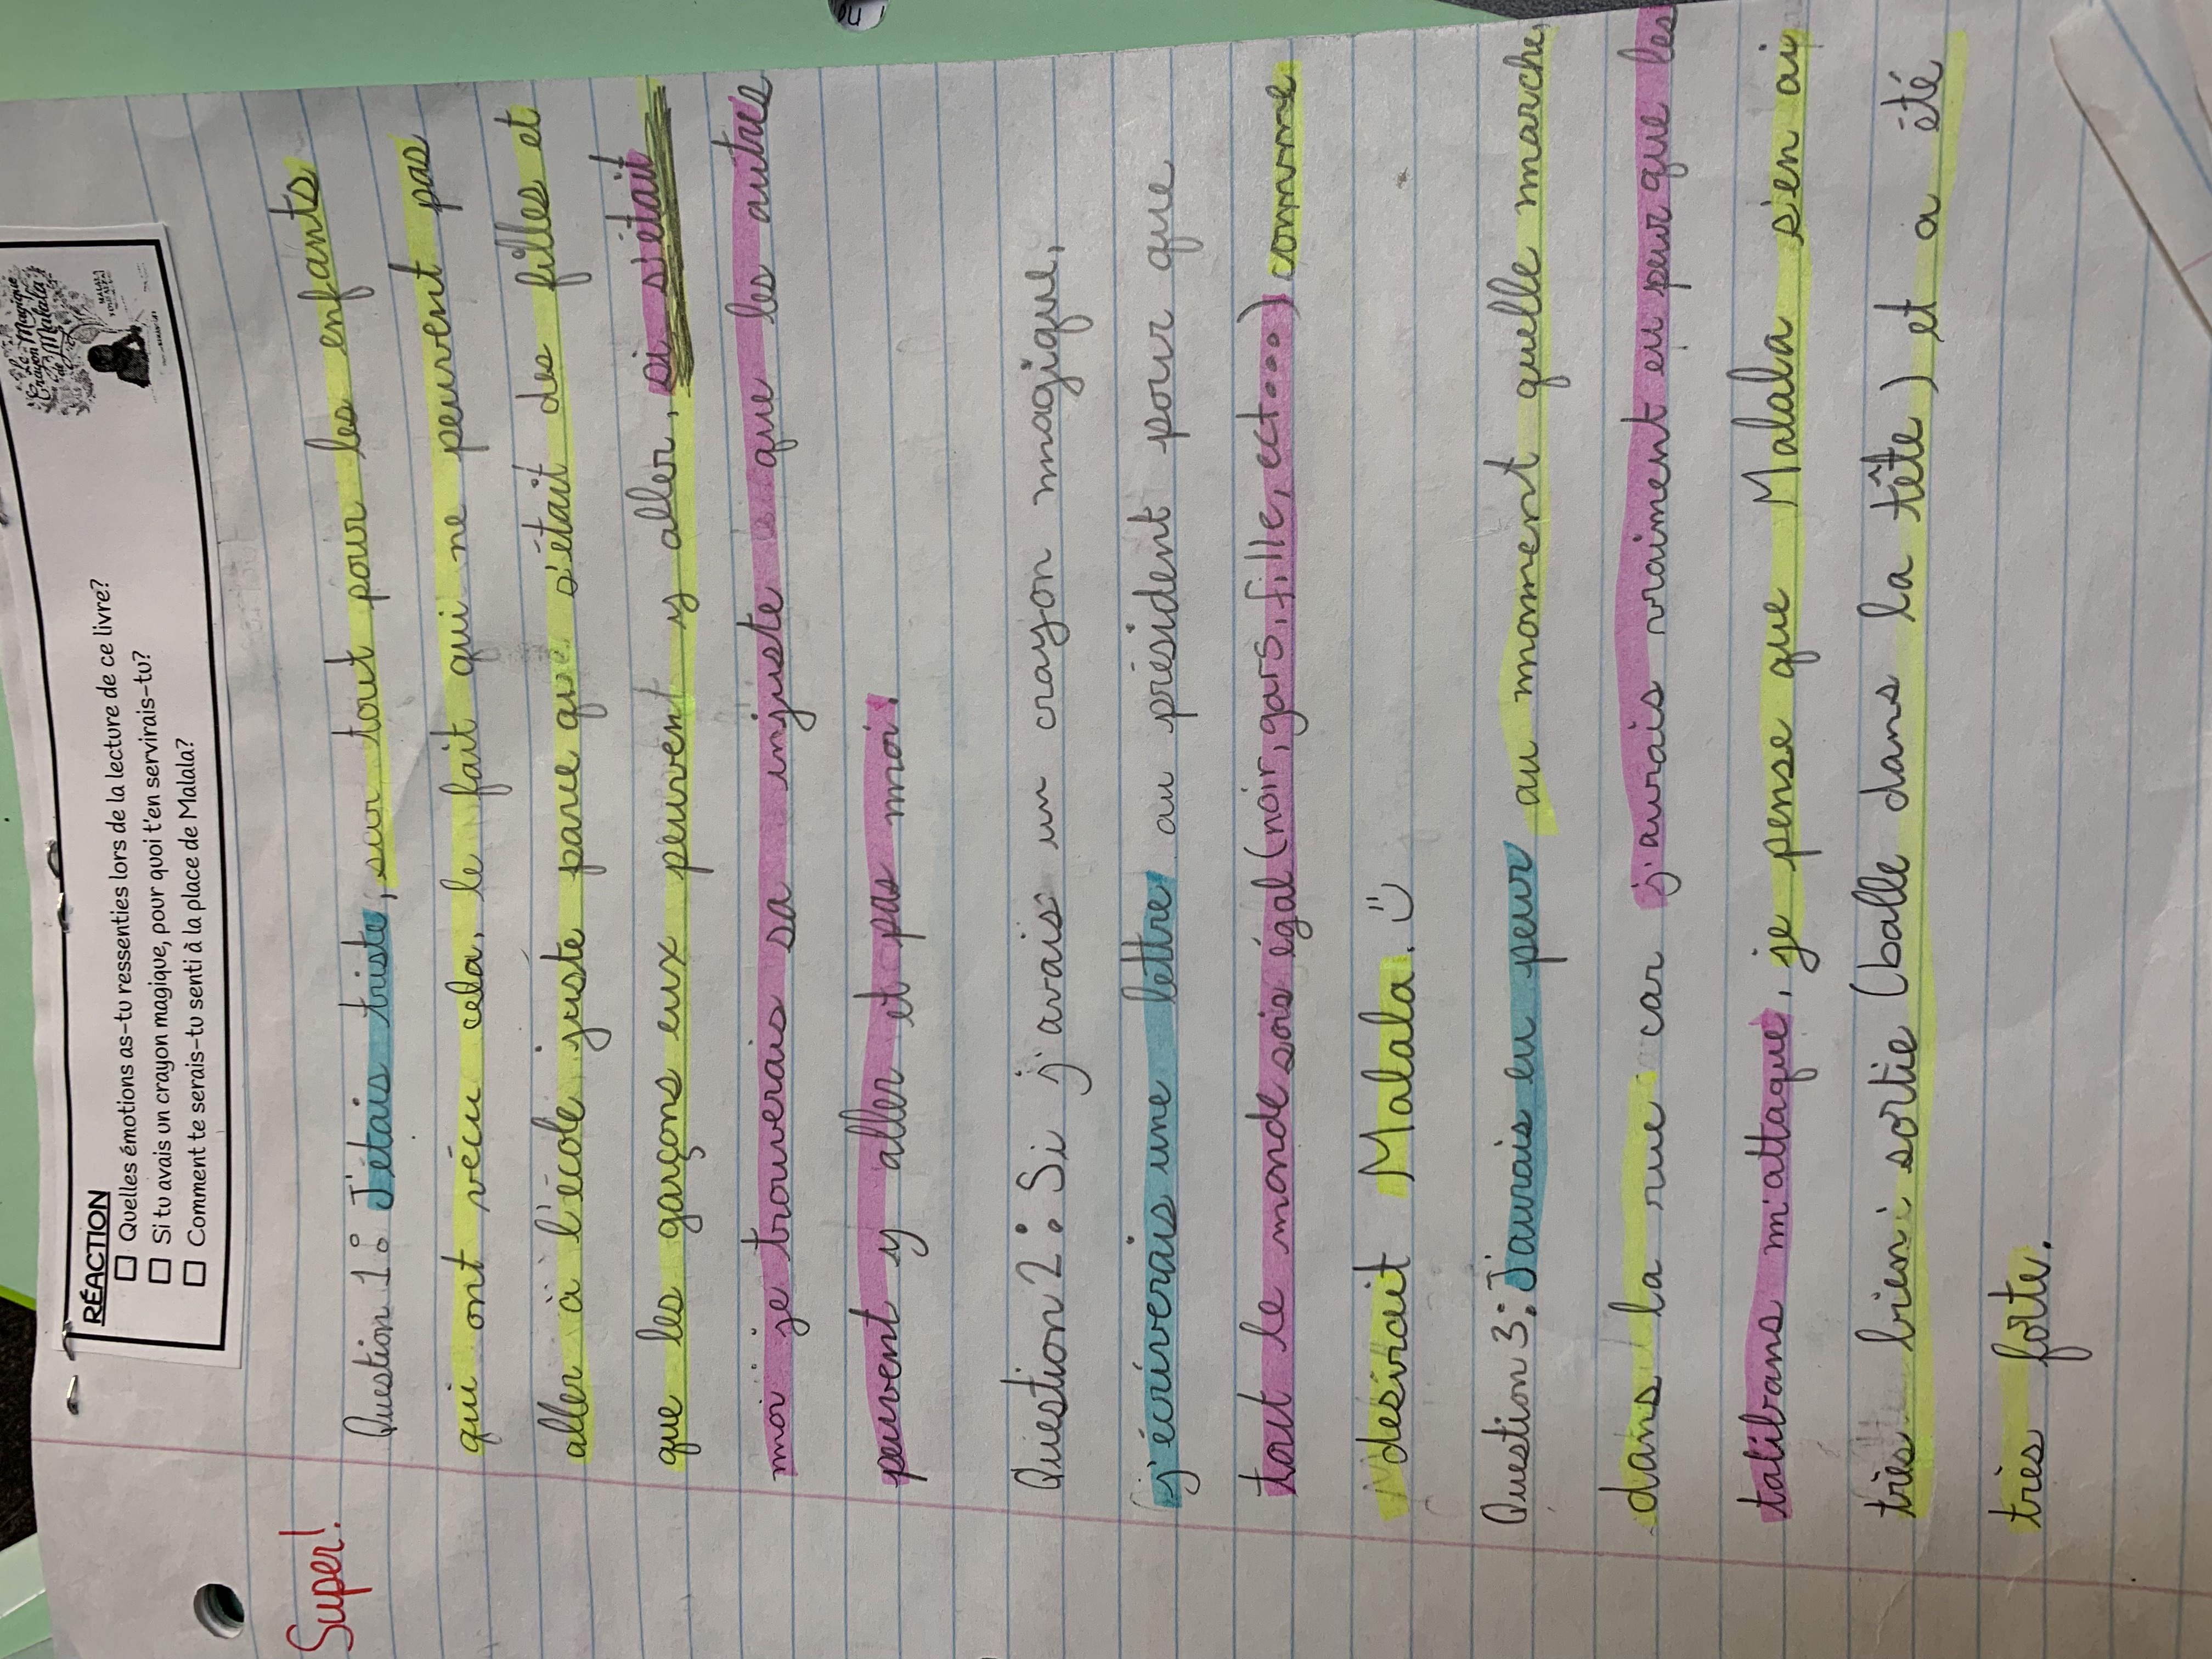 Le Magique
Crayon
de Malala
MALALA
RÉACTION
☐ Quelles émotions as-tu ressenties lors de la lecture de ce livre?
☐ Si tu avais un crayon magique, pour quoi t'en servirais-tu?
☐ Comment te serais-tu senti à la place de Malala?
Super!
Question 1: J'étais triste, sur tout pour les enfants
qui ont vécu cela, le fait qui ne peuvent pas
aller à l'école juste parce que s'était des filles et
que les garçons eux peuvent y aller, si s'était
moi je trouverais sa injuste que les autre
peuvent y aller et pas moi.
Question 2: Si j'avais un crayon magique,
j'écriverais une lettre au président pour que
tout le monde sois égal (noir, gars, fille, ect...) comme
désirait Malala. :)
Question 3: J'aurais eu peur au moment quelle marche
dans la rue car j'aurais vraiment eu peur que les
talibans m'attaque, je pense que Malala s'en ai
très bien sortie (balle dans la tête) et a été
très forte.